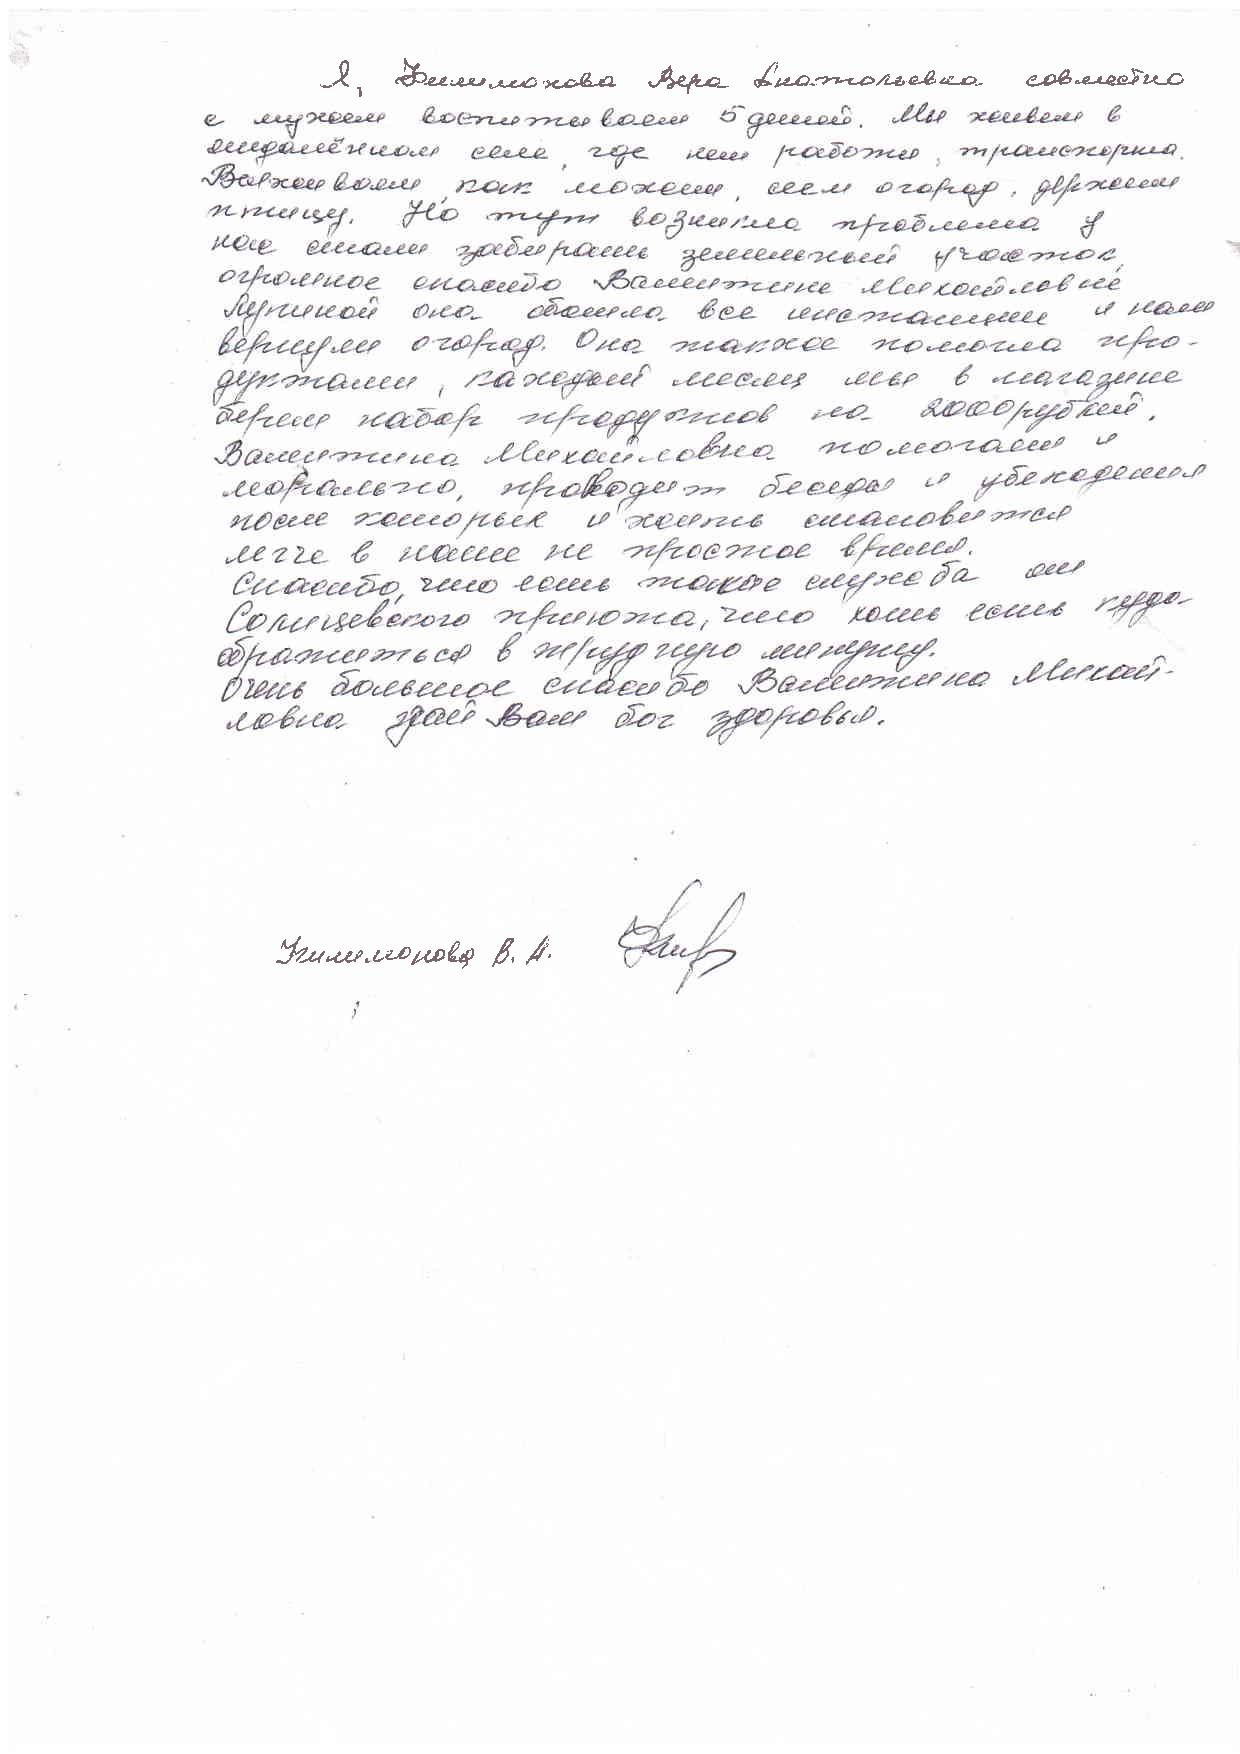 Я, Филимонова Вера Анатольевна совместно
с мужем воспитываем 5 детей. Мы живем в
отдалённом селе, где нет работы, транспорта.
Выживаем, как можем, сеем огород, держим
птицу. Но тут возникла проблема у
нас стали забирать земельный участок,
огромное спасибо Валентине Михайловне
она обошла все инстанции и нам
вернули огород. Она также помогла про-
дуктами, каждый месяц мы в магазине
берем набор продуктов на 2000 рублей.
Валентина Михайловна помогает и
морально, проводит беседы и убеждения
после которых и жить становится
легче в наше не простое время.
Спасибо, что есть такая служба от
Солнцевского приюта, что хоть есть куда
обратиться в трудную минуту.
Очень большое спасибо Валентина Михай-
ловна дай Вам бог здоровья.
Филимонова В. А.